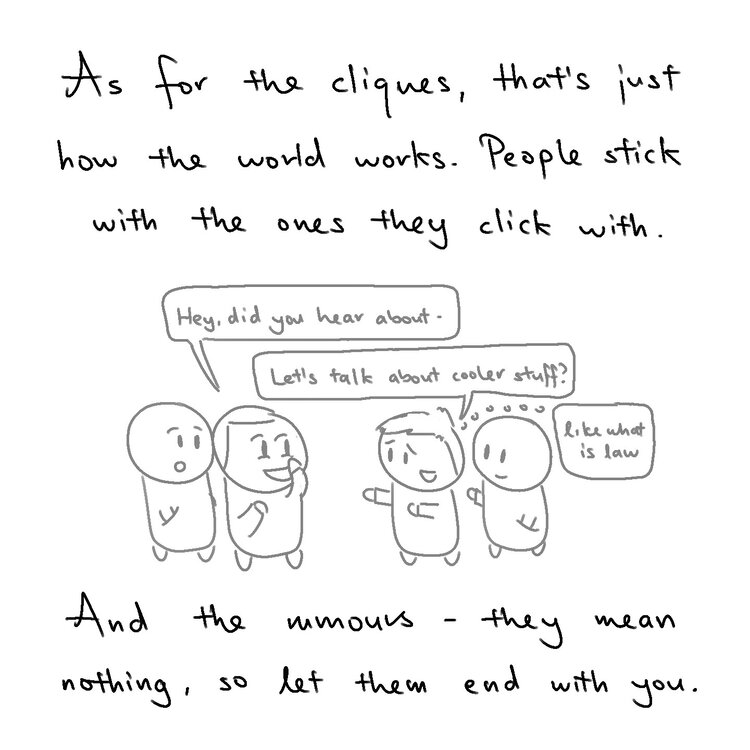 As for the cliques, that's just
how the world works. People stick
with the ones they click with.
Hey, did you hear about-
Let's talk about cooler stuff?
like what
is law
And the rumours - they mean
nothing, so let them end with you.